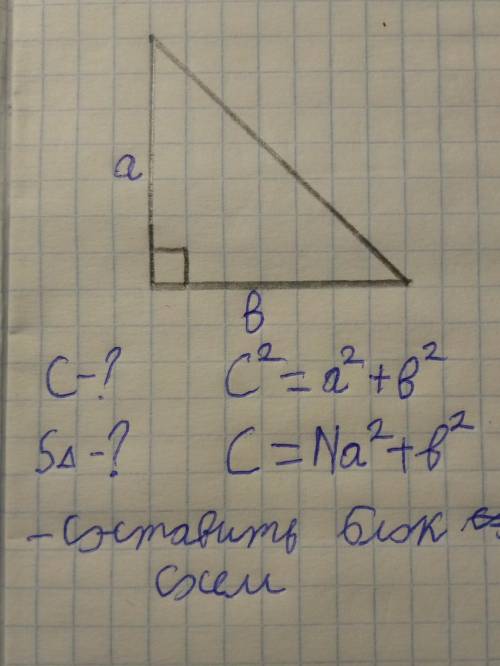 a
в
C-? C²=a²+в²
S△-? C=Na²+в²
-составить блок
схем